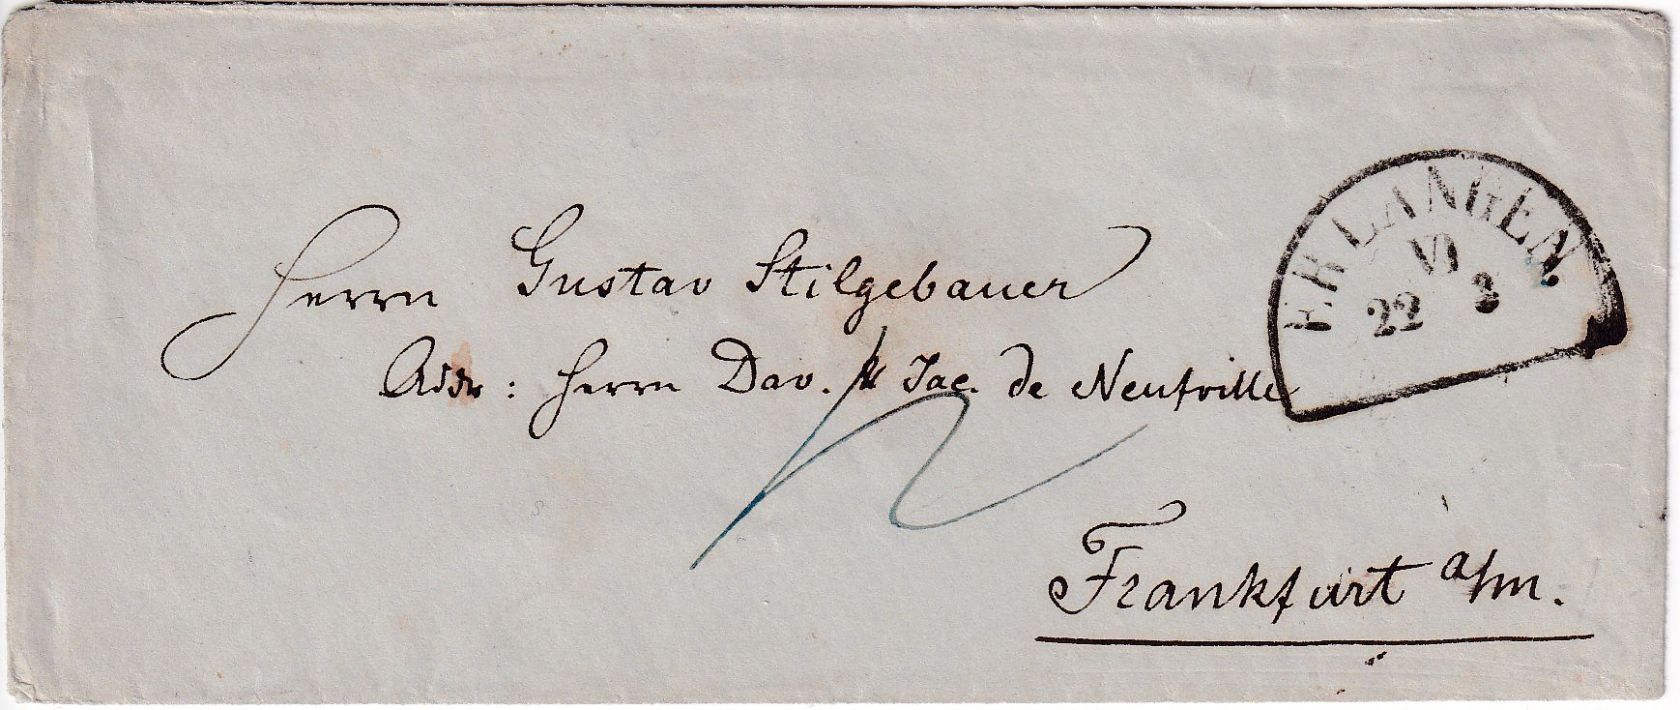 ERLANGEN.
VI
22 3
Herrn Gustav Stilgebauer
Addr: Herrn Dav. & Jac. de Neufville
Frankfurt a/m.